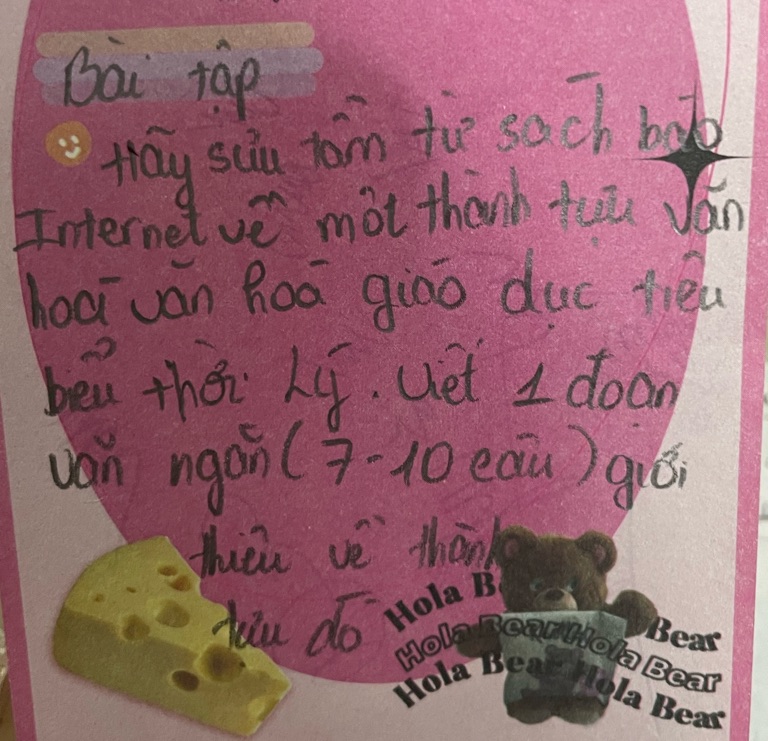 Bài tập
Hãy sưu tầm từ sách báo
Internet về một thành tựu văn
hoá văn hoá giáo dục tiêu
biểu thời Lý. Viết 1 đoạn
văn ngắn (7-10 câu) giới
thiệu về thành
tựu đó
Hola B
Bear
Hola Bear Hola Bear
Hola Bear Hola Bear